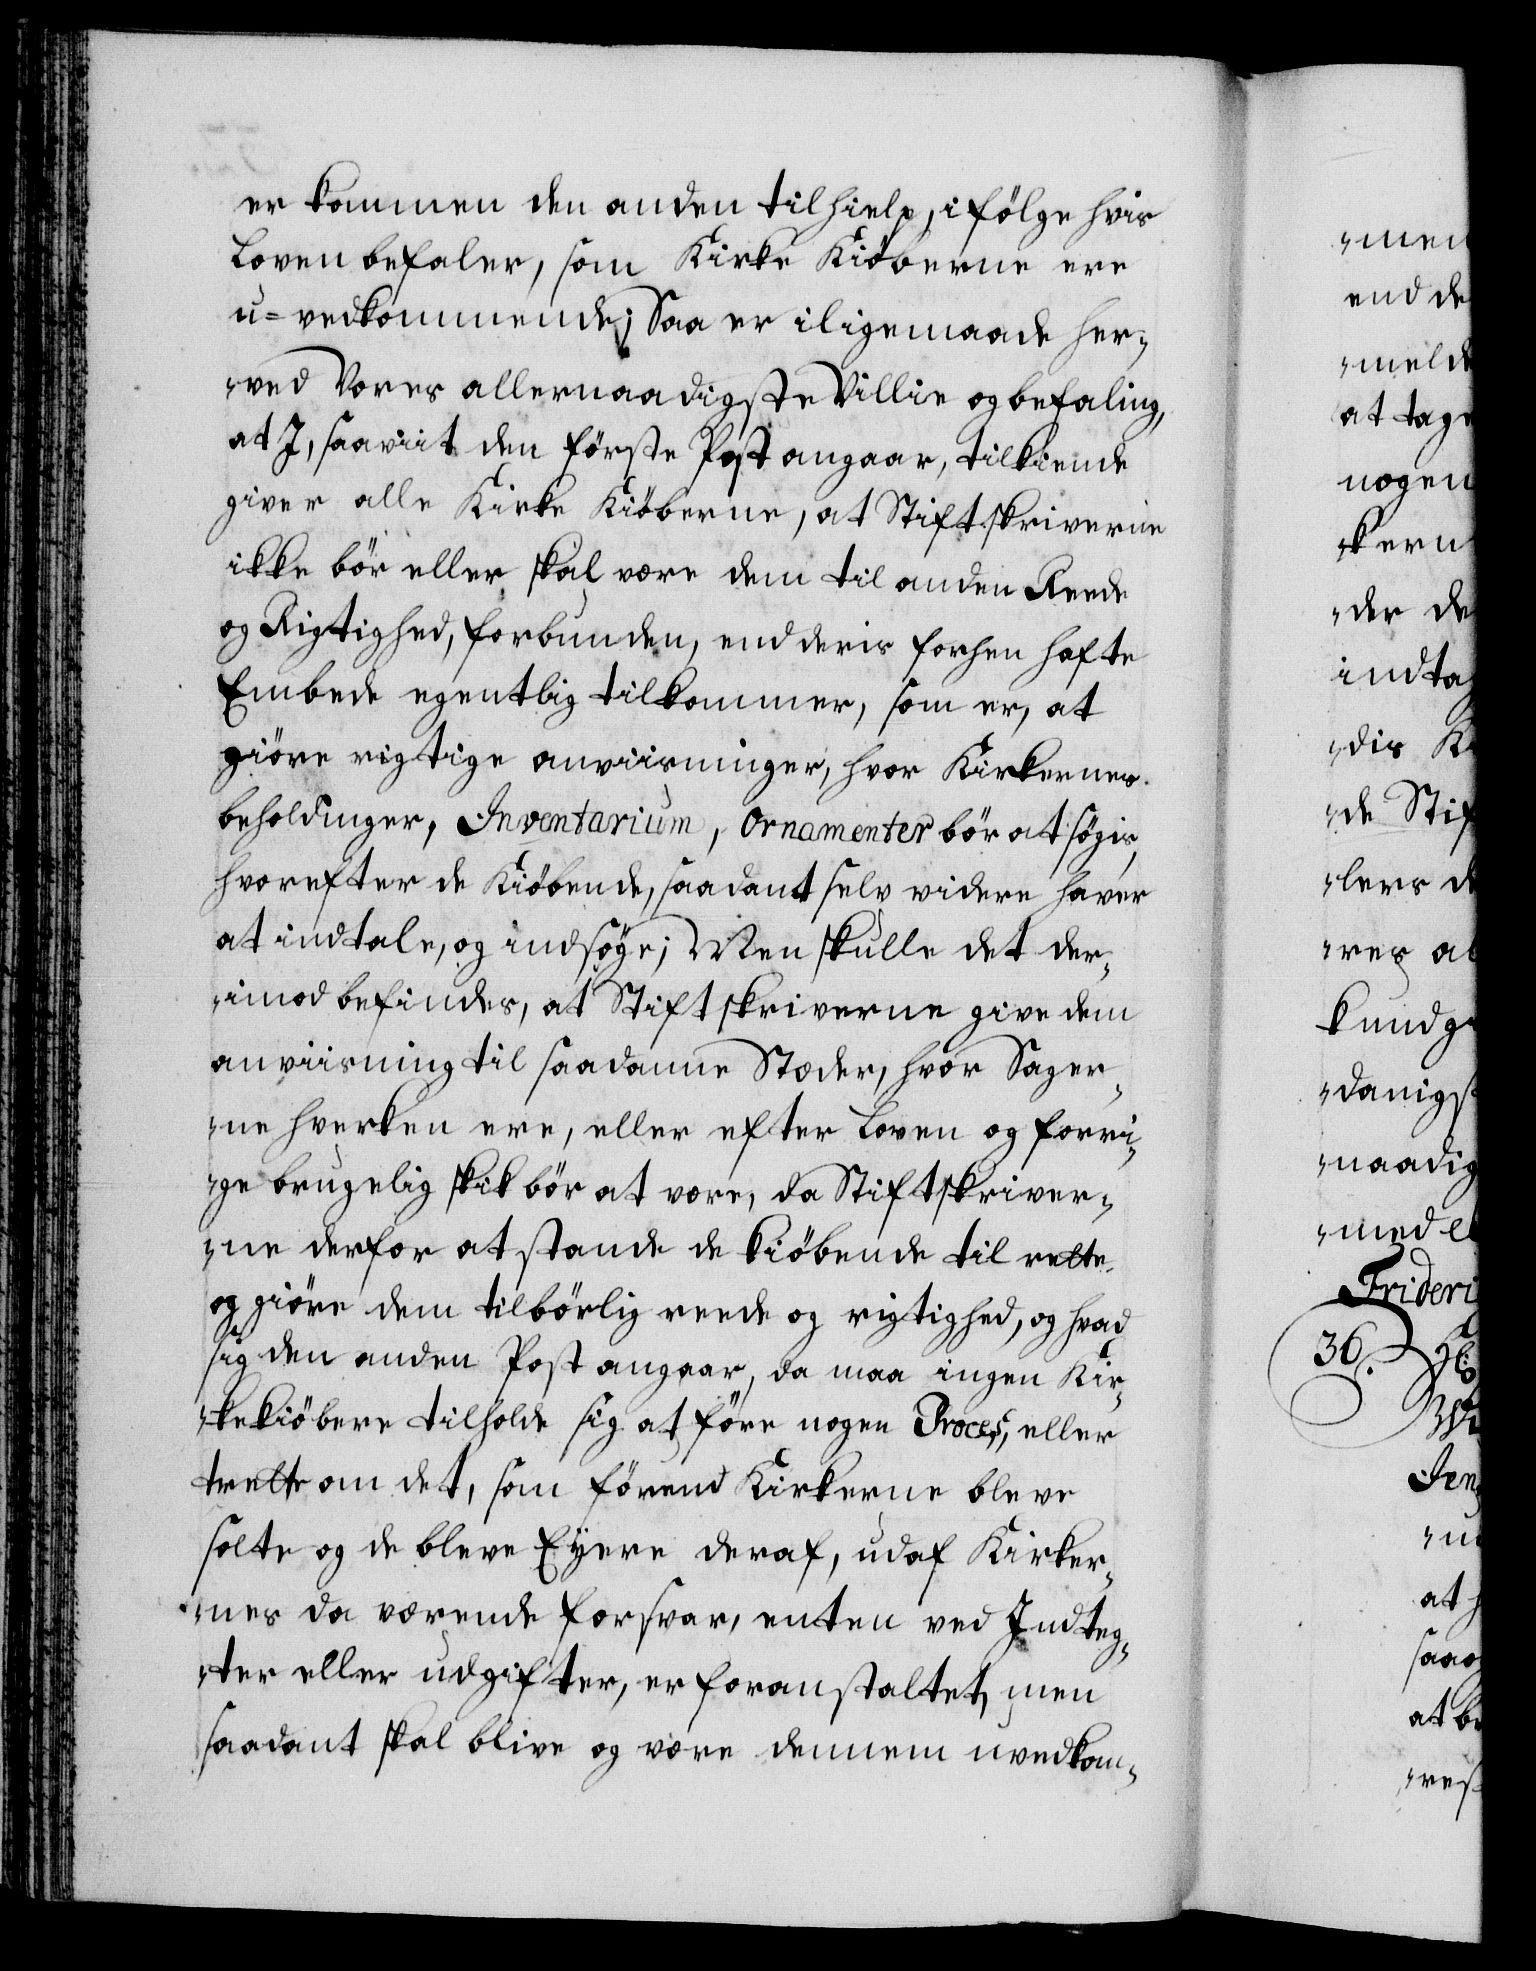 er kommen den anden til hielp, i fölge hvis
Loven befaler, som Kirke Kiöberne ere
u=vedkommende; Saa er iligemaade her-
-ved Vores allernaadigste Villie og befaling,
at I, saaviit den förste Post angaar, tilkiende
giver alle Kirke Kiöberne, at Stiftskriverne
ikke bör eller skal være dem til anden Reede
og Rigtighed, forbunden, end deris forhen hafte
Embede egentlig tilkommer, som er, at
giöre rigtige anviisninger, hvor Kirkernes
beholdinger, Inventarium, Ornamenter bör at søgis,
hvorefter de Kiöbende, saadant selv videre haver
at indtale, og indsøge; Men skulle det der-
-imod befindes, at Stiftskriverne give dem
anviisning til saadanne Stæder, hvor Sager-
-ne hverken ere, eller efter Loven og forri-
-ge brugelig skik bör at være, da Stiftskriver-
-ne derfor at stande de kiöbende til rette
og giöre dem tilbörlig reede og rigtighed, og hvad
sig den anden Post angaar, da maa ingen Kir-
-kekiöbere tilholde sig at före nogen Proces, eller
trette om det, som förend Kirkerne bleve
solte og de bleve Eyere deraf, udaf Kirker-
-nes da værende forsvar, enten ved Indteg-
-ter eller udgifter, er foranstaltet, men
saadant skal blive og være dennem uvedkom-
-men
end de
-melde
at tage
nogen
-kern
-der de
indtag
-dis
-de Stif
-lers
-res al
kundg
-danigst
-naadig
-med
Frideri
36.
Jen
at
saa
at be
-res